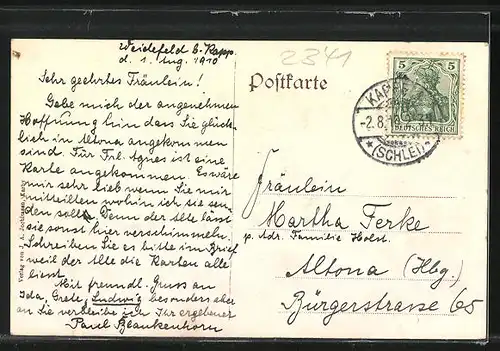 Weidefeld b. Kapp.
d. 1. Aug. 1910
Sehr geehrtes Fräulein!
Gebe mich der angenehmen
Hoffnung hin dass Sie glück-
lich in Altona angekommen
sind. Für Frl. Agnes ist eine
Karte angekommen. Es wäre
mir sehr lieb wenn Sie mir
mitteilten wohin ich sie sen-
den soll. Denn der Alte lässt
sie sonst hier verschimmeln.
Schreiben Sie es bitte im Brief
weil der Alte die Karten alle
liest.
Mit freundl. Gruss an
Ida, Grete, Ludwig besonders aber
an Sie verbleibe ich Ihr ergebener
Paul Blankenhorn
Verlag von J. A. Jochimsen, Kappeln
2341
Postkarte
5 5
DEUTSCHES REICH
KAPPELN
-2.8.10
* (SCHLEI) *
Fräulein
Martha Ferke
p. Adr. Familie Holst.
Altona (Hbg.)
Bürgerstrasse 65